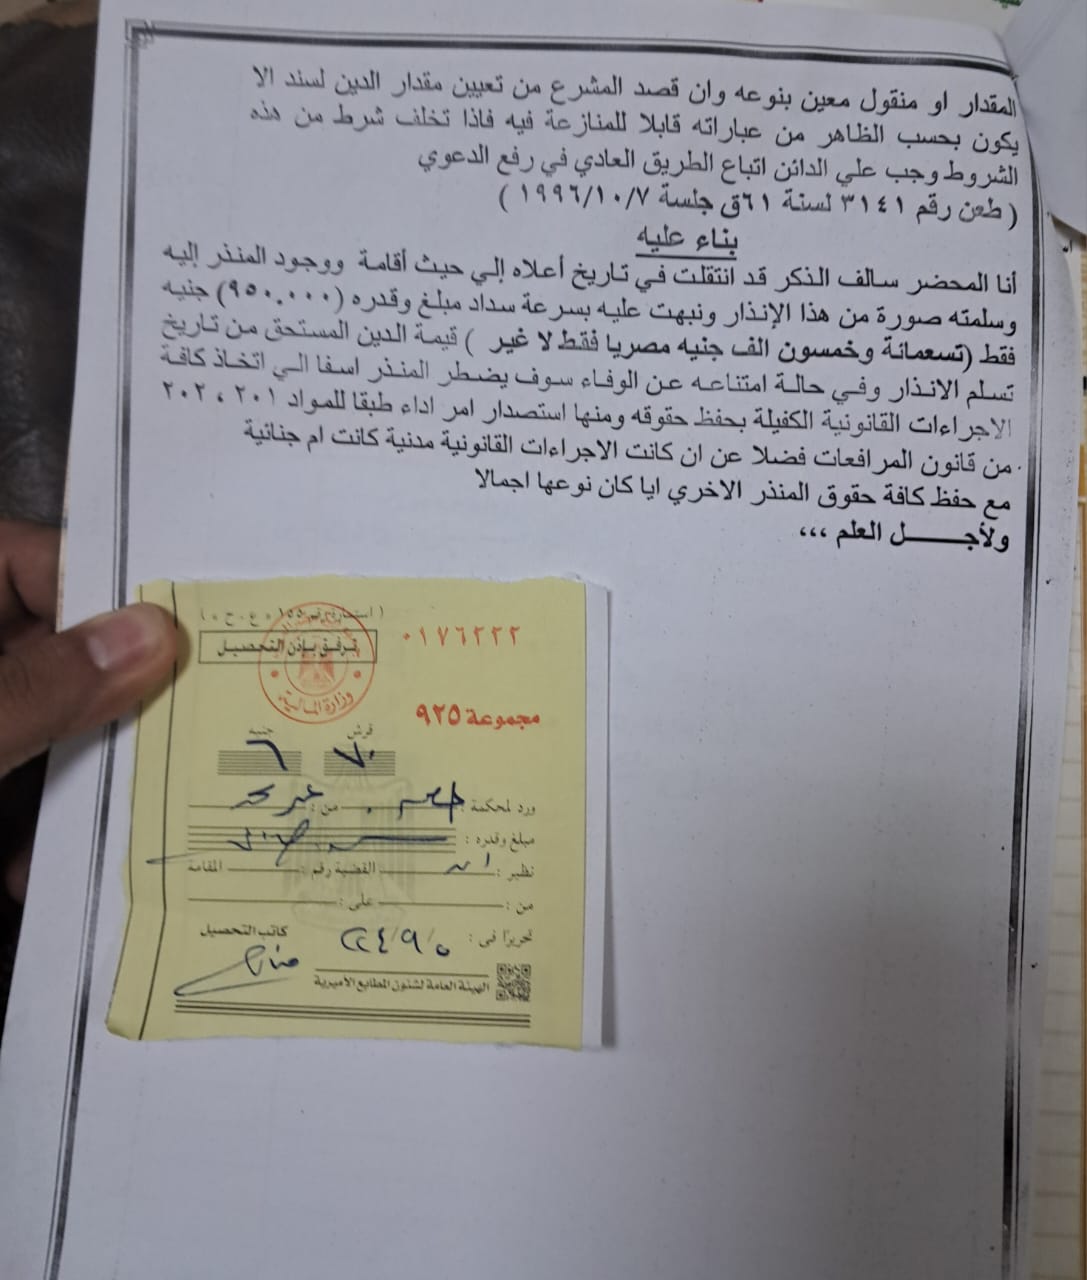 المقدار او منقول معين بنوعه وان قصد المشرع من تعيين مقدار الدين لسند الا
يكون بحسب الظاهر من عباراته قابلا للمنازعة فيه فاذا تخلف شرط من هذه
الشروط وجب علي الدائن اتباع الطريق العادي في رفع الدعوي
( طعن رقم ٣١٤١ لسنة ٦١ق جلسة ١٩٩٦/١٠/٧ )
بناء عليه
أنا المحضر سالف الذكر قد انتقلت في تاريخ أعلاه إلي حيث أقامة ووجود المنذر إليه
وسلمته صورة من هذا الإنذار ونبهت عليه بسرعة سداد مبلغ وقدره (٩٥٠.٠٠٠) جنيه
فقط (تسعمائة وخمسون الف جنيه مصريا فقط لا غير ) قيمة الدين المستحق من تاريخ
تسلم الانذار وفي حالة امتناعه عن الوفاء سوف يضطر المنذر اسفا الي اتخاذ كافة
الاجراءات القانونية الكفيلة بحفظ حقوقه ومنها استصدار امر اداء طبقا للمواد ٢٠١ ، ٢٠٢
من قانون المرافعات فضلا عن ان كانت الاجراءات القانونية مدنية كانت ام جنائية
مع حفظ كافة حقوق المنذر الاخري ايا كان نوعها اجمالا
ولأجـــــل العلم ،،،
( استمارة رقم ١٥٥ ع . ح . )
٠١٧٦٢٢٢
ترفق بإذن التحصيل
وزارة المالية
مجموعة ٩٢٥
قرش جنيه
٧٠ ٦
ورد لمحكمة : من :
مبلغ وقدره :
نظير : القضية رقم : المقامة
من : على :
تحريرًا فى : كاتب التحصيل
الهيئة العامة لشئون المطابع الأميرية